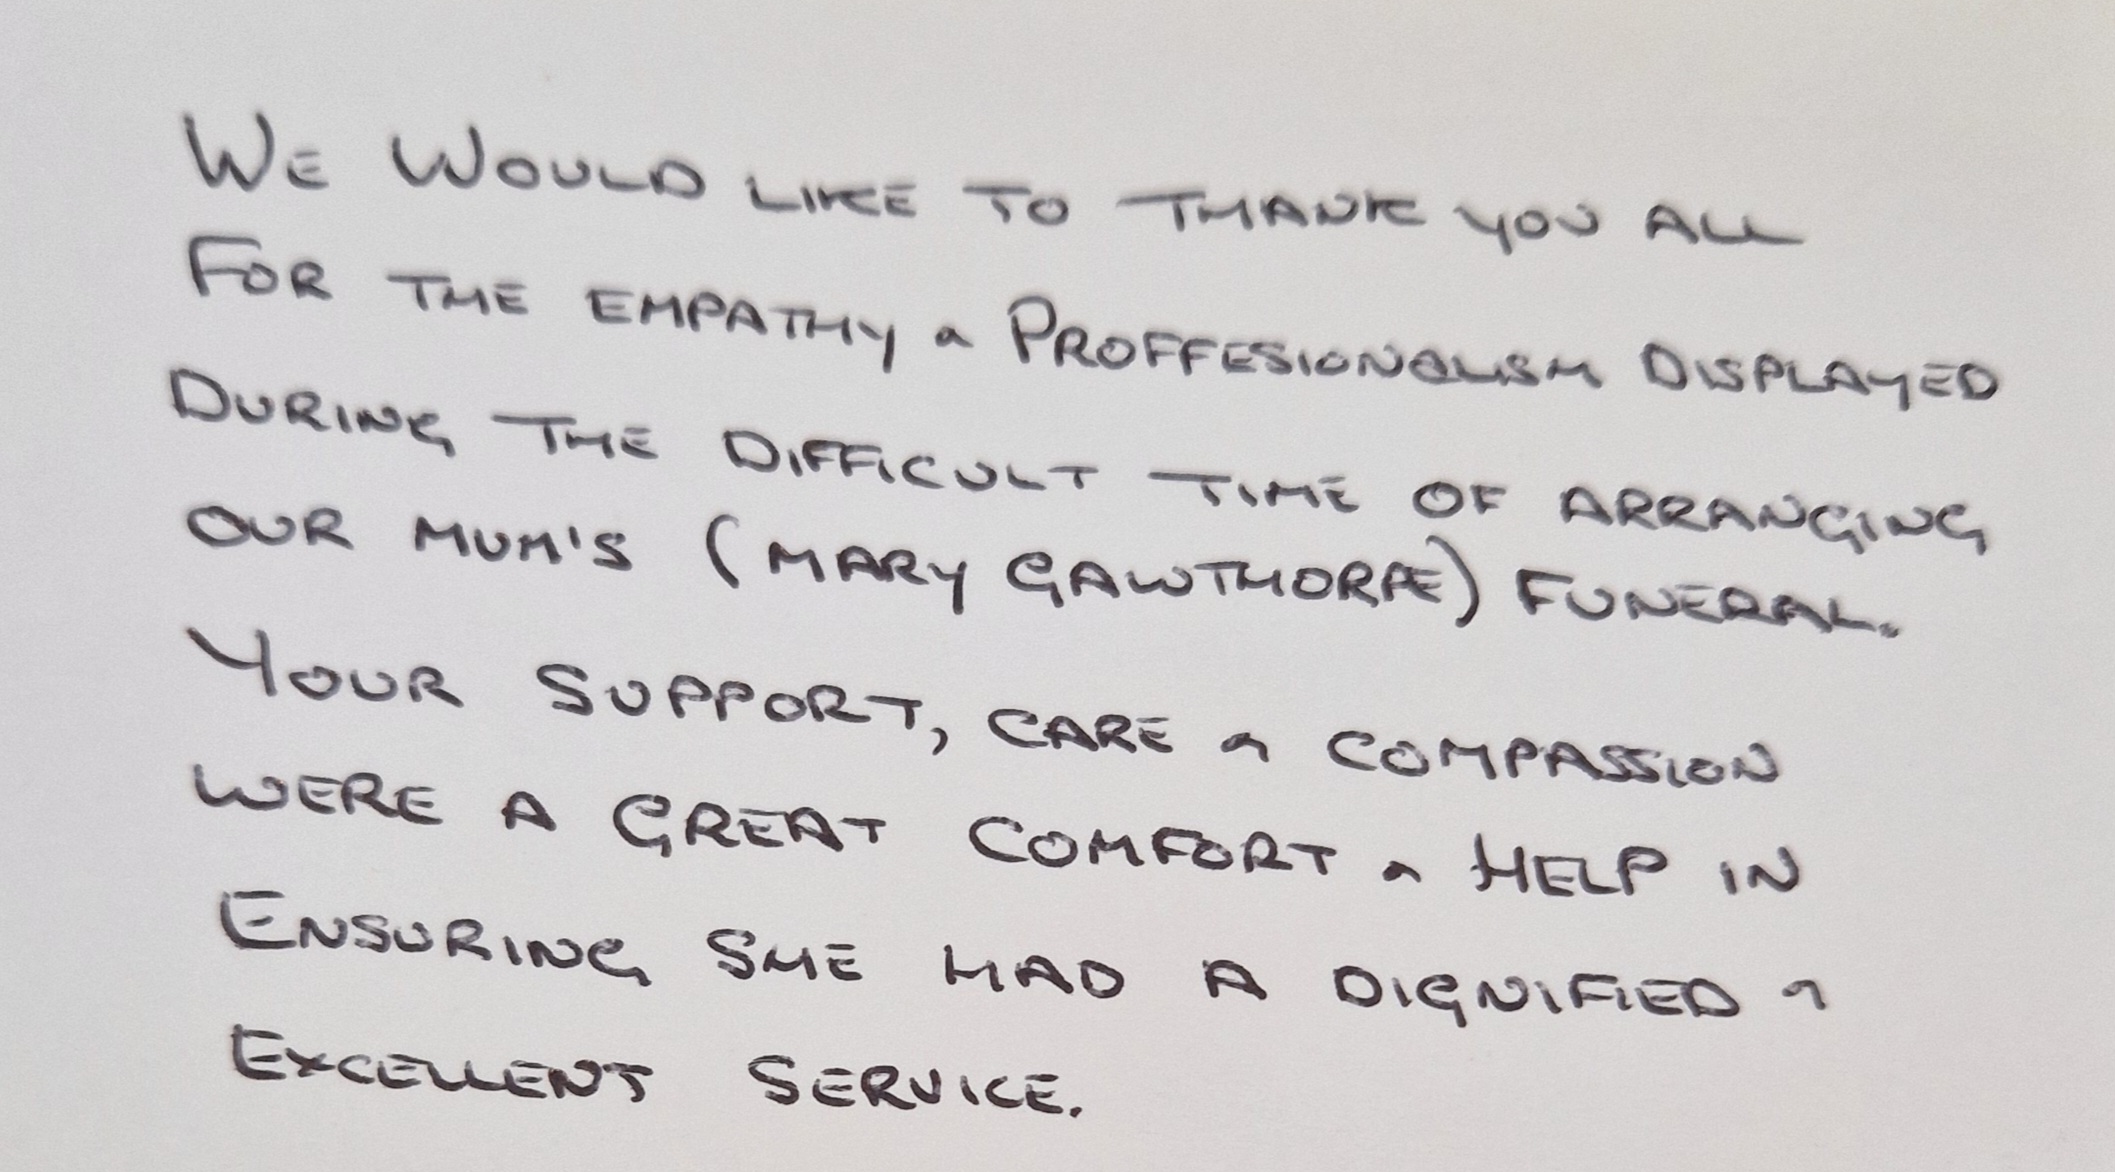 WE WOULD LIKE TO THANK YOU ALL
FOR THE EMPATHY & PROFFESIONALISM DISPLAYED
DURING THE DIFFICULT TIME OF ARRANGING
OUR MUM'S (MARY GAWTHORPE) FUNERAL.
YOUR SUPPORT, CARE & COMPASSION
WERE A GREAT COMFORT & HELP IN
ENSURING SHE HAD A DIGNIFIED &
EXCELLENT SERVICE.